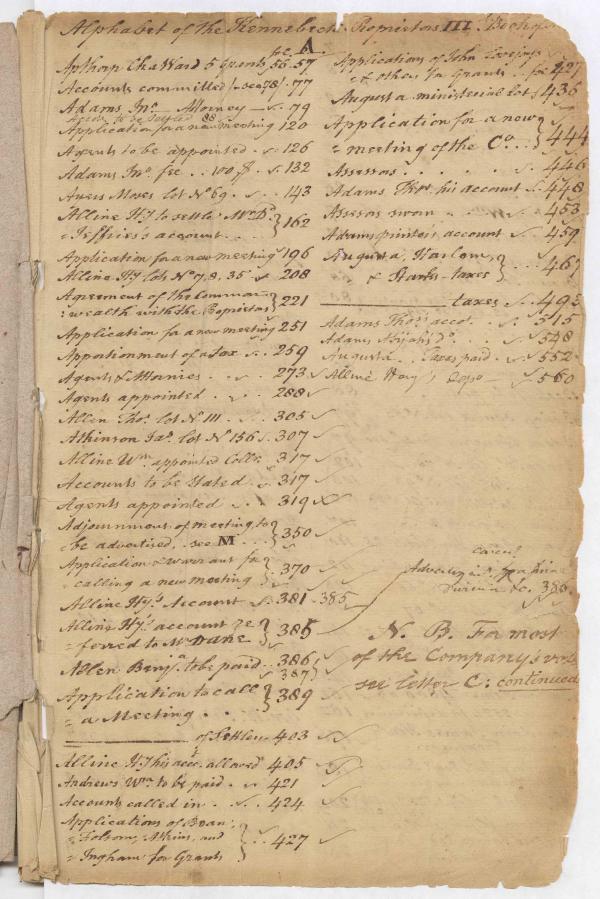 Alphabet of the Kennebeck Propietors III. Book
A.
Apthorp Cha Ward 5 Grants foe. 56.57
Accounts committed /see 78/. 77
Adams Jno. Attorney 79
Agents to be settled 88
Application for a new meeting 120
Agents to be appointed 126
Adams Jno. fee 100 132
Avers Moses lot No 69 143
Alline Hy to settle Mr D.
= Jeffries's account 162
Application for a new meeting 196
Alline Hy lots No 7, 8, 35 208
Agreement of the Common
= wealth with the Propietors 221
Application for a new meeting 251
Apportionment of a tax 259
Agents & Attornies 273
Agents appointed 288
Allen Thos. lot No 111 305
Atkinson Jas. lot No 156 307
Alline Wm. appointed Collr. 317
Accounts to be stated 317
Agents appointed 319
Adjournment of meeting to
= be advertised, see M 350
Application & warrant for
= calling a new meeting 370
Alline Hy's Account 381 385
Alline Hy's account re
= ferred to Mr Dane 385
Allen Benja. to be paid 386
387
Application to call
= a Meeting 389
of Settlers 403
Alline Hy his acct. allowed 405
Andrews Wm. to be paid 421
Accounts called in 424
Applications of Bean,
= Folsom, Atkins, and
= Ingham for Grants 427
Applications of John Lovejoy
& others for Grants foe 427
Augusta ministerial lot 436
Application for a new
= meeting of the Co. 444
Assessors 446
Adams Thos. his account 448
Assessors sworn 453
Adams printer's account 459
Augusta, Harlem,
& Starks taxes 467
taxes 495
Adams Thos. acco. 515
Adams Do. 548
Augusta Taxes paid 552
Alline Hary's 560
Advertisg
&c. 386
N. B. For most
of the Company's votes
see letter C: continued